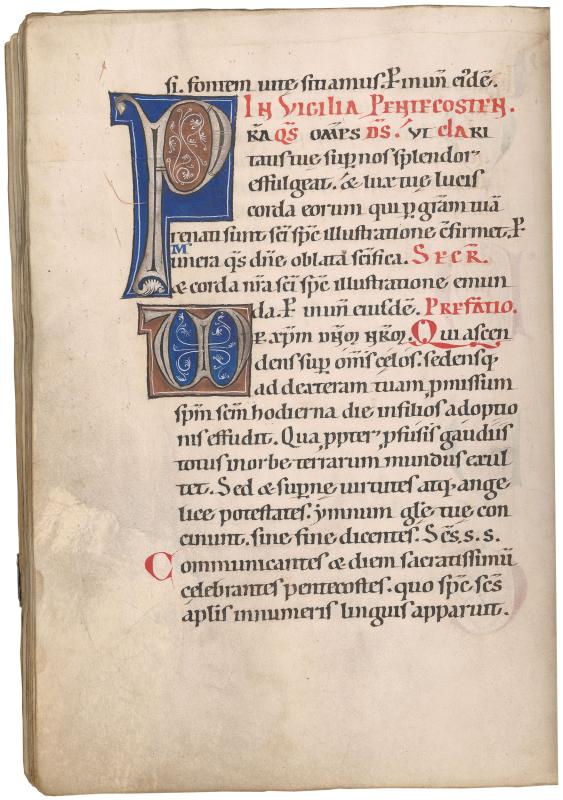 si. fontem uite sitiamus. P. in unit̄. ei᷒dē.
IN VIGILIA PENTECOSTEN.
P RA QS̄ OMPS DS̄. VT CLARI
tatis tue sup̲ nos splendor
effulgeat. & lux tue lucis
corda eorum qui p̲ grām tuā
renati sunt sc̄i sp̄c illustratione c̄firmet. P.
Munera q̄s dn̄e oblata sc̄ifica. SECR̄.
& corda nr̄a sc̄i sp̄c illustratione emun
da. P. in unit̄ eiusdē. PREFATIO.
p̲ xp̄m Qui ascen
dens sup̲ om̄s celos. sedensq;
ad dexteram tuam, p̲missum
sp̄m sc̄m hodierna die in filios adoptio
nis effudit. Qua p̲pter, p̲fusis gaudiis
totus in orbe terrarum mundus exul
tet. Sed & sup̲ne uirtutes atq; ange
lice potestates. ymnum gl̄e tue con
cinunt. sine fine dicentes. Sc̄s. s. s.
Communicantes & diem sacratissimū
celebrantes pentecostes. quo sp̄c sc̄s
ap̄lis innumeris linguis apparuit.